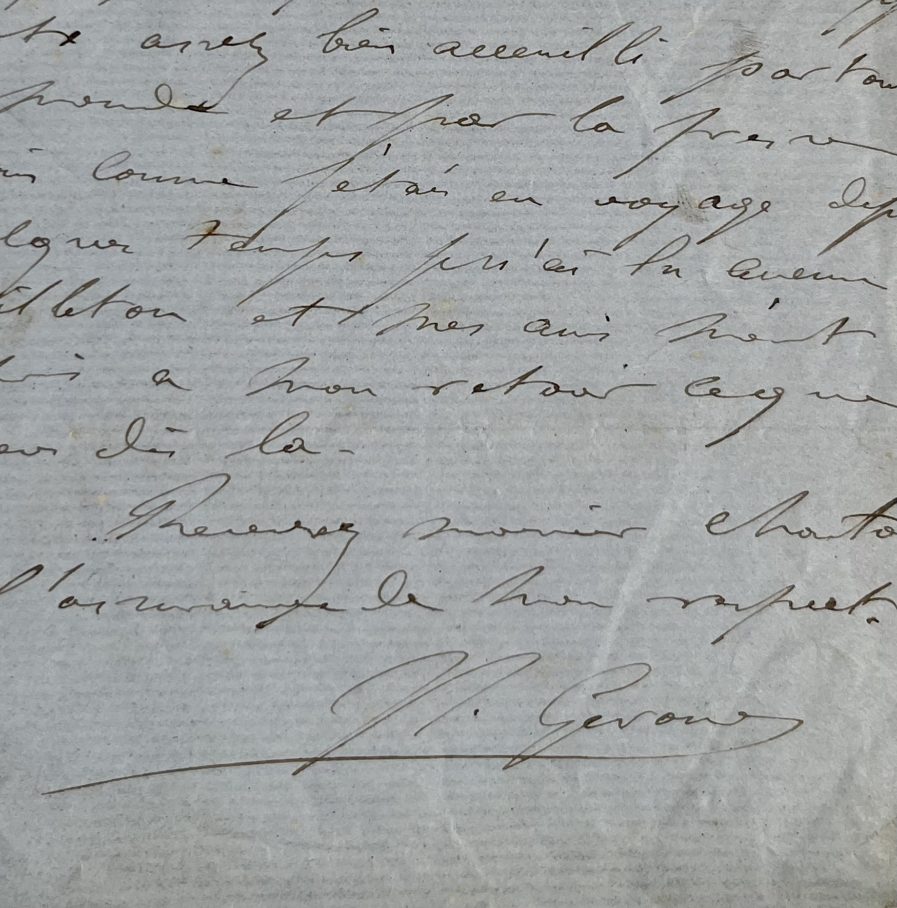 assez bien acceuilli partou
monde et par la presse
comme j'étais en voyage dep
lques temps je n'ai lu aucun
illeton et mes amis m'ont
a mon retour ceque
dis la -
Recevez monsieur
l'assurance de mon respect.